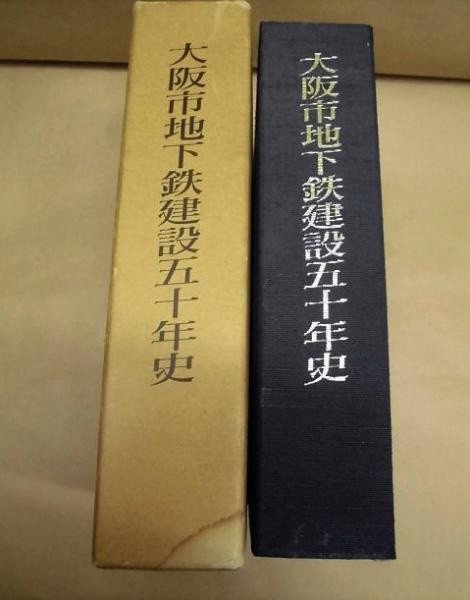 大阪市地下鉄建設五十年史
大阪市地下鉄建設五十年史